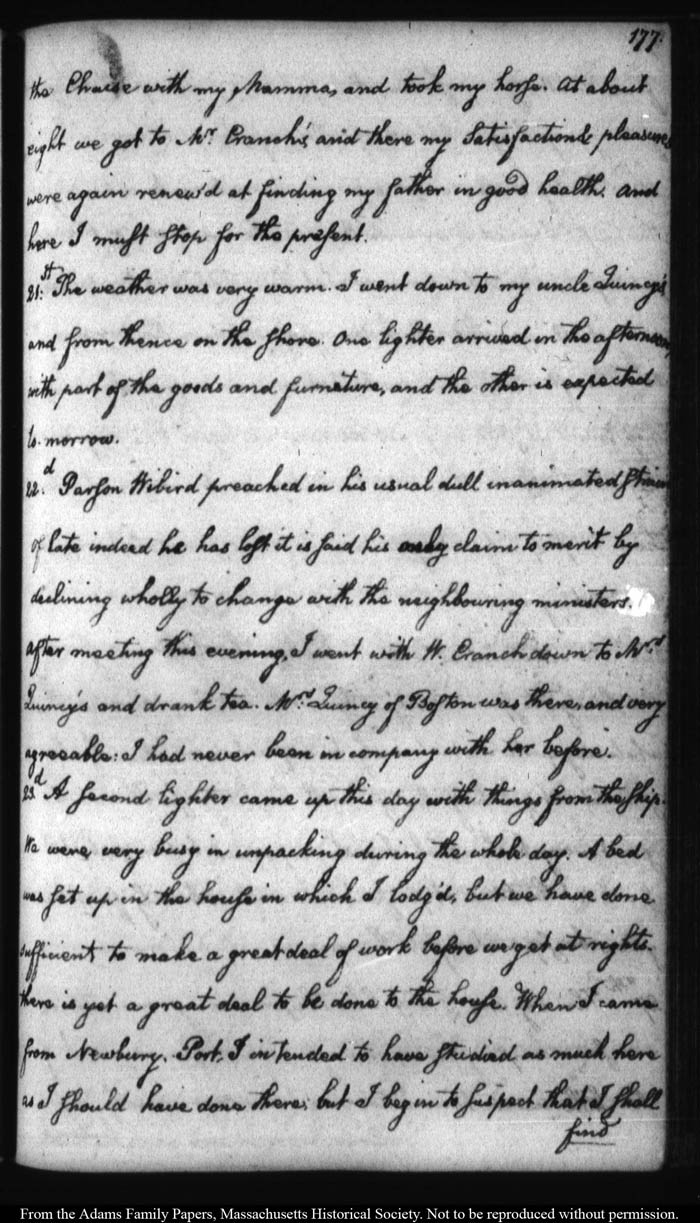 177.
the Chaise with my Mamma, and took my horse. At about
eight we got to Mr. Cranch's, and there my Satisfaction & pleasures
were again renew'd at finding my father in good health. And
here I must stop for the present.
21.st The weather was very warm. I went down to my uncle Quincy's
and from thence on the shore. One lighter arrived in the afternoon,
with part of the goods and furneture, and the other is expected
to-morrow.
22.d Parson Wibird preached in his usual dull inanimated strain
of late indeed he has lost it is said his only claim to merit by
declining wholly to change with the neighbouring ministers.
After meeting this evening, I went with W. Cranch down to Mrs.
Quincy's and drank tea. Mrs. Quincy of Boston was there, and very
agreeable: I had never been in company with her before.
23.d A second lighter came up this day with things from the ship.
We were very busy in unpacking during the whole day. A bed
was set up in the house in which I lodg'd, but we have done
sufficient to make a great deal of work before we get at rights.
there is yet a great deal to be done to the house. When I came
from Newbury-Port, I intended to have studied as much here
as I should have done there; but I begin to suspect that I shall
find
From the Adams Family Papers, Massachusetts Historical Society. Not to be reproduced without permission.